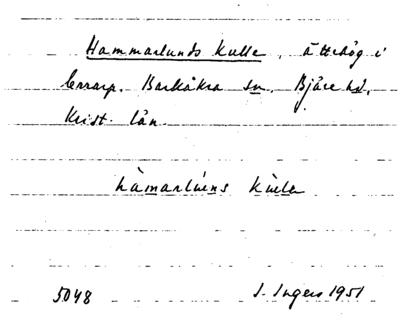 Hammarlunds Kulle, ättehög i
Errarp. Barkåkra sn. Bjäre hd.
Krist. län
hàmarlúns kùlle
5048 I. Ingers 1951